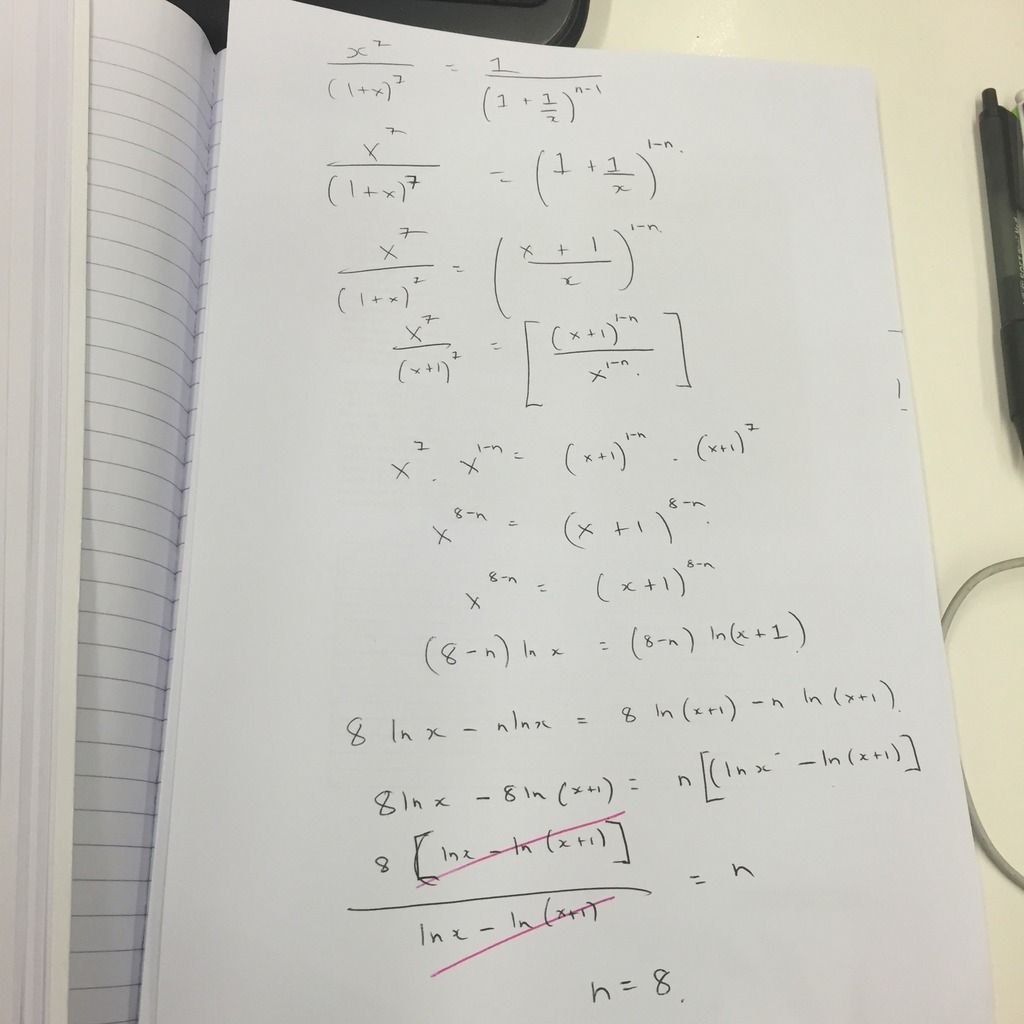 x^7/(1+x)^7 = 1/(1 + 1/x)^{n-1}
x^7/(1+x)^7 = (1 + 1/x)^{1-n}.
x^7/(1+x)^7 = ((x + 1)/x)^{1-n}.
x^7/(x+1)^7 = [(x+1)^{1-n}/x^{1-n}.]
x^7 . x^{1-n} = (x+1)^{1-n} . (x+1)^7
x^{8-n} = (x + 1)^{8-n}.
x^{8-n} = (x+1)^{8-n}
(8-n) ln x = (8-n) ln(x+1)
8 ln x - n ln x = 8 ln (x+1) - n ln (x+1).
8 ln x - 8 ln (x+1) = n[(ln x - ln (x+1)]
8 [ln x - ln (x+1)]/ln x - ln (x+1) = n
n = 8.